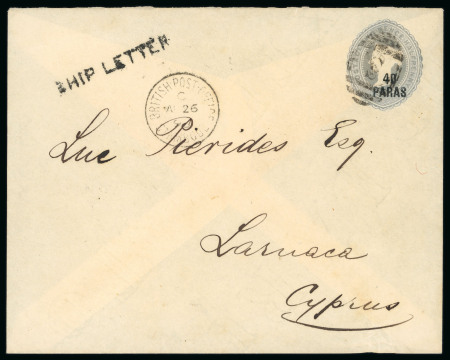 SHIP LETTER
BRITISH POST OFFICE
C
26
40
PARAS
Luc Pierides Esq.
Larnaca
Cyprus